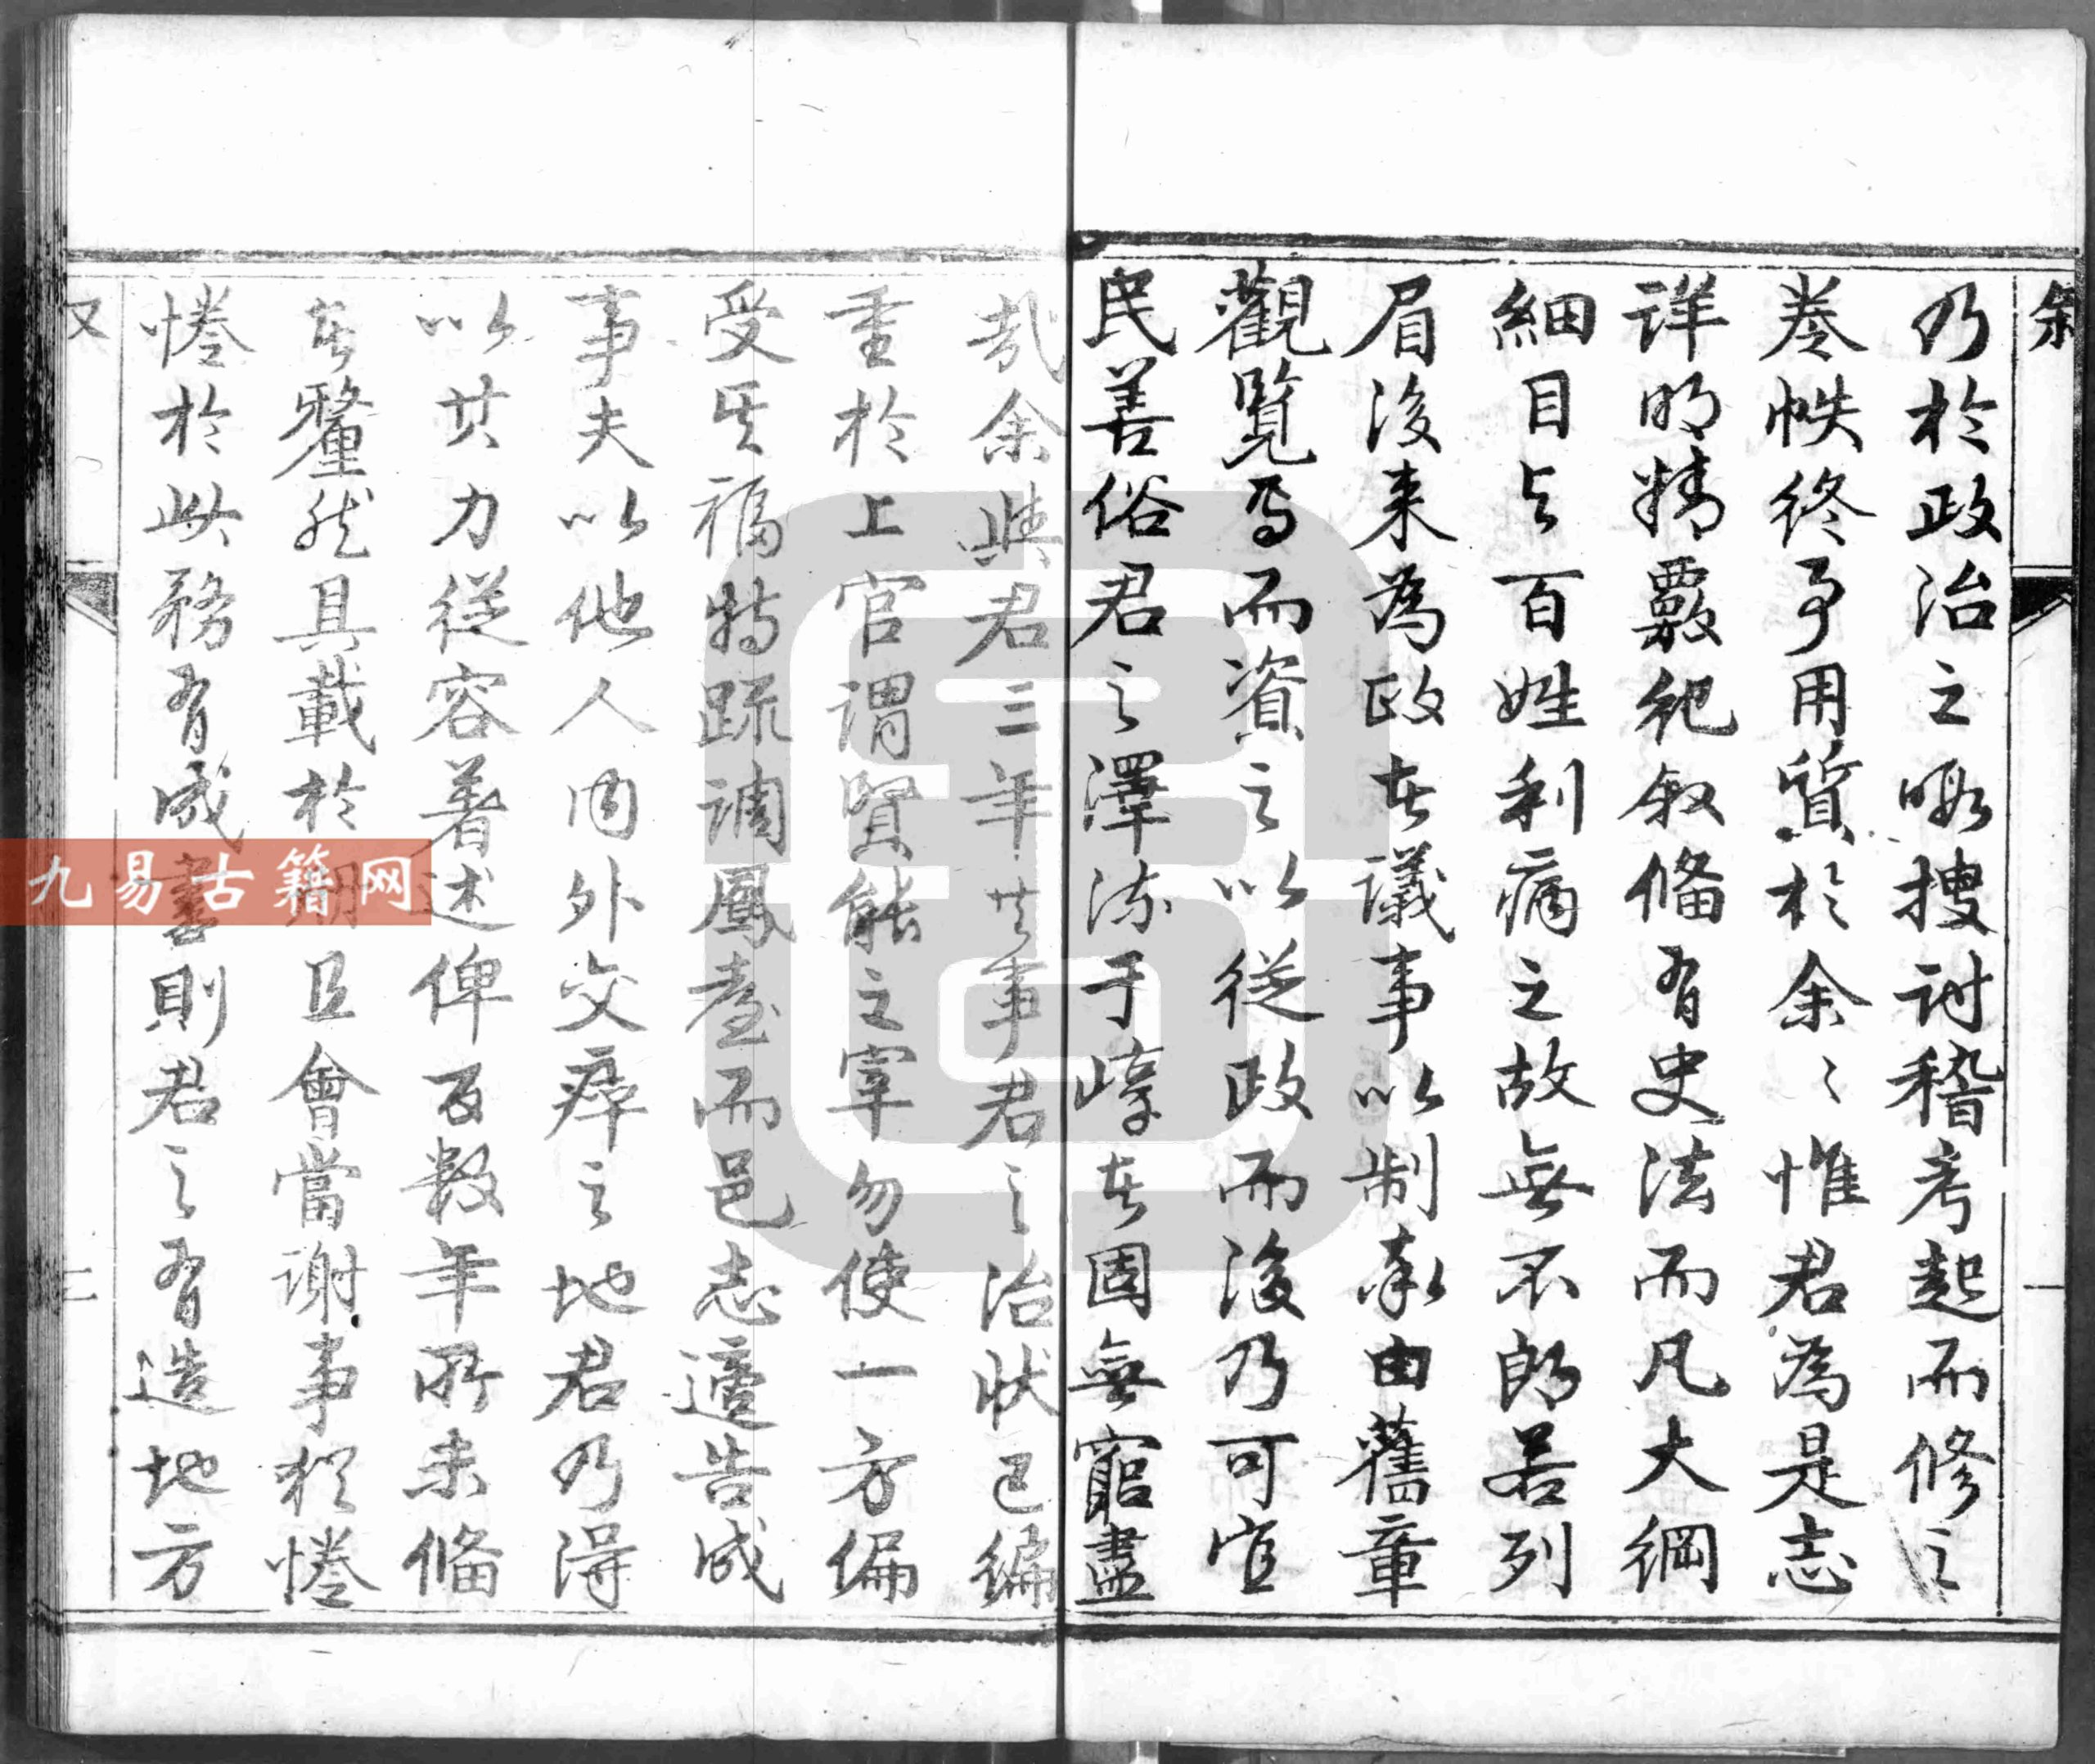 叙
乃於政治之暇搜討稽考起而修之
卷帙終予用質於余〻惟君為是志
详明精覈紀叙俻有史法而凡大綱
細目与百姓利病之故無不郎若列
眉後来為政者議事以制率由舊章
觀覧焉而資之以従政而後乃可宜
民善俗君之澤流于崞者固無窮盡
哉余與君三年共事君之治狀已編
重於上官謂賢能之宰勿使一方偏
受其福特疏調鳳臺而邑志適告成
事夫以他人内外交瘁之地君乃得
以其力從容著述俾百数年所未俻
者釐然具載於册且會當谢事猶惓
惓於此務有成書則君之有造地方
又
一
二
九易古籍网